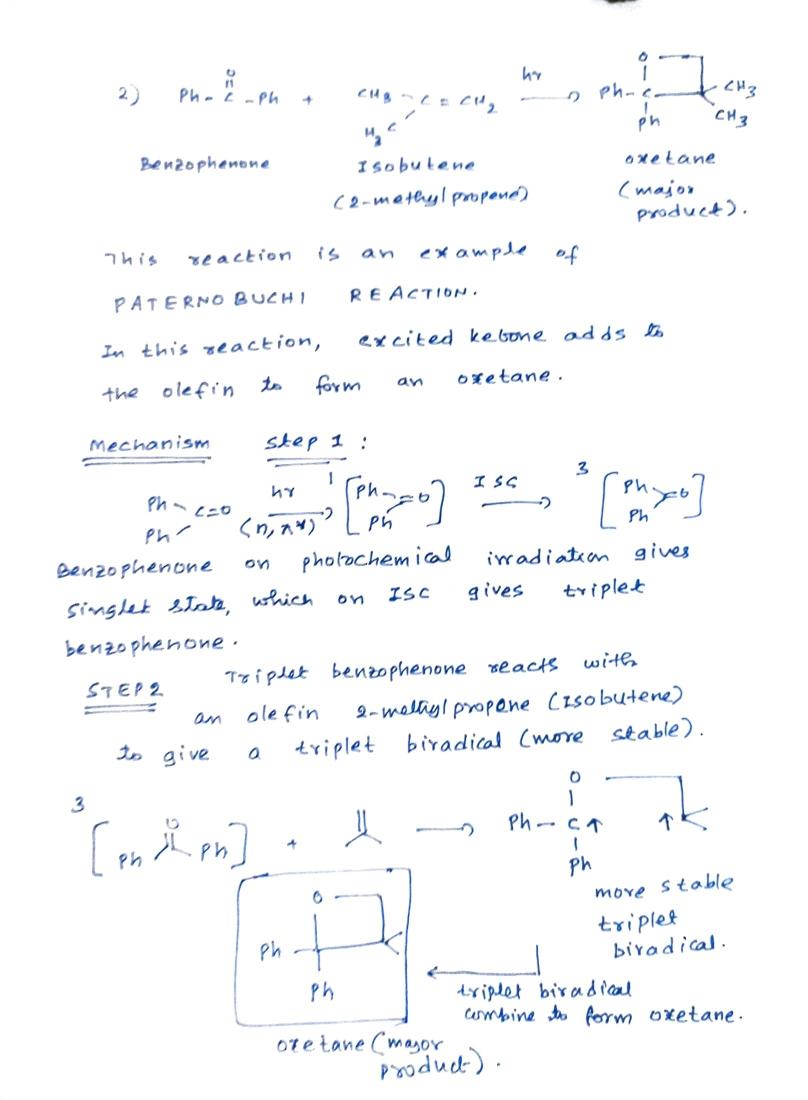 2) Ph - C - Ph + CH3 - C = CH2 hν → Ph - C CH3
O H3C O Ph CH3
Benzophenone Isobutene oxetane
(2-methyl propene) (major product).
This reaction is an example of
PATERNO BUCHI REACTION.
In this reaction, excited ketone adds to
the olefin to form an oxetane.
Mechanism step 1 :
Ph Ph C=O hν (n, π*) 1 [Ph Ph =O] ISC → 3 [Ph Ph =O]
Benzophenone on photochemical irradiation gives
singlet state, which on ISC gives triplet
benzophenone.
STEP 2 Triplet benzophenone reacts with
an olefin 2-methyl propene (Isobutene)
to give a triplet biradical (more stable).
3 [Ph O Ph] + → Ph - C ↑ ↑
O Ph
more stable
triplet
biradical.
O
Ph
Ph
triplet biradical
combine to form oxetane.
oxetane (major
product).